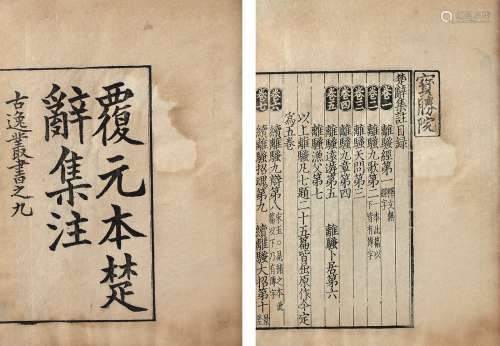 覆元本楚
辭集注
古逸叢書之九
寶勝院
楚辭集註目録
卷一
離騷經第一
卷二
離騷九歌第二
卷三
離騷天問第三
卷四
離騷九章第四
卷五
離騷遠遊第五
離騷卜居第六
離騷漁父第七
以上離騷凡七題二十五篇皆屈原作今定
爲五卷
卷六
續離騷九辯第八
卷七
續離騷招魂第九
續離騷大招第十